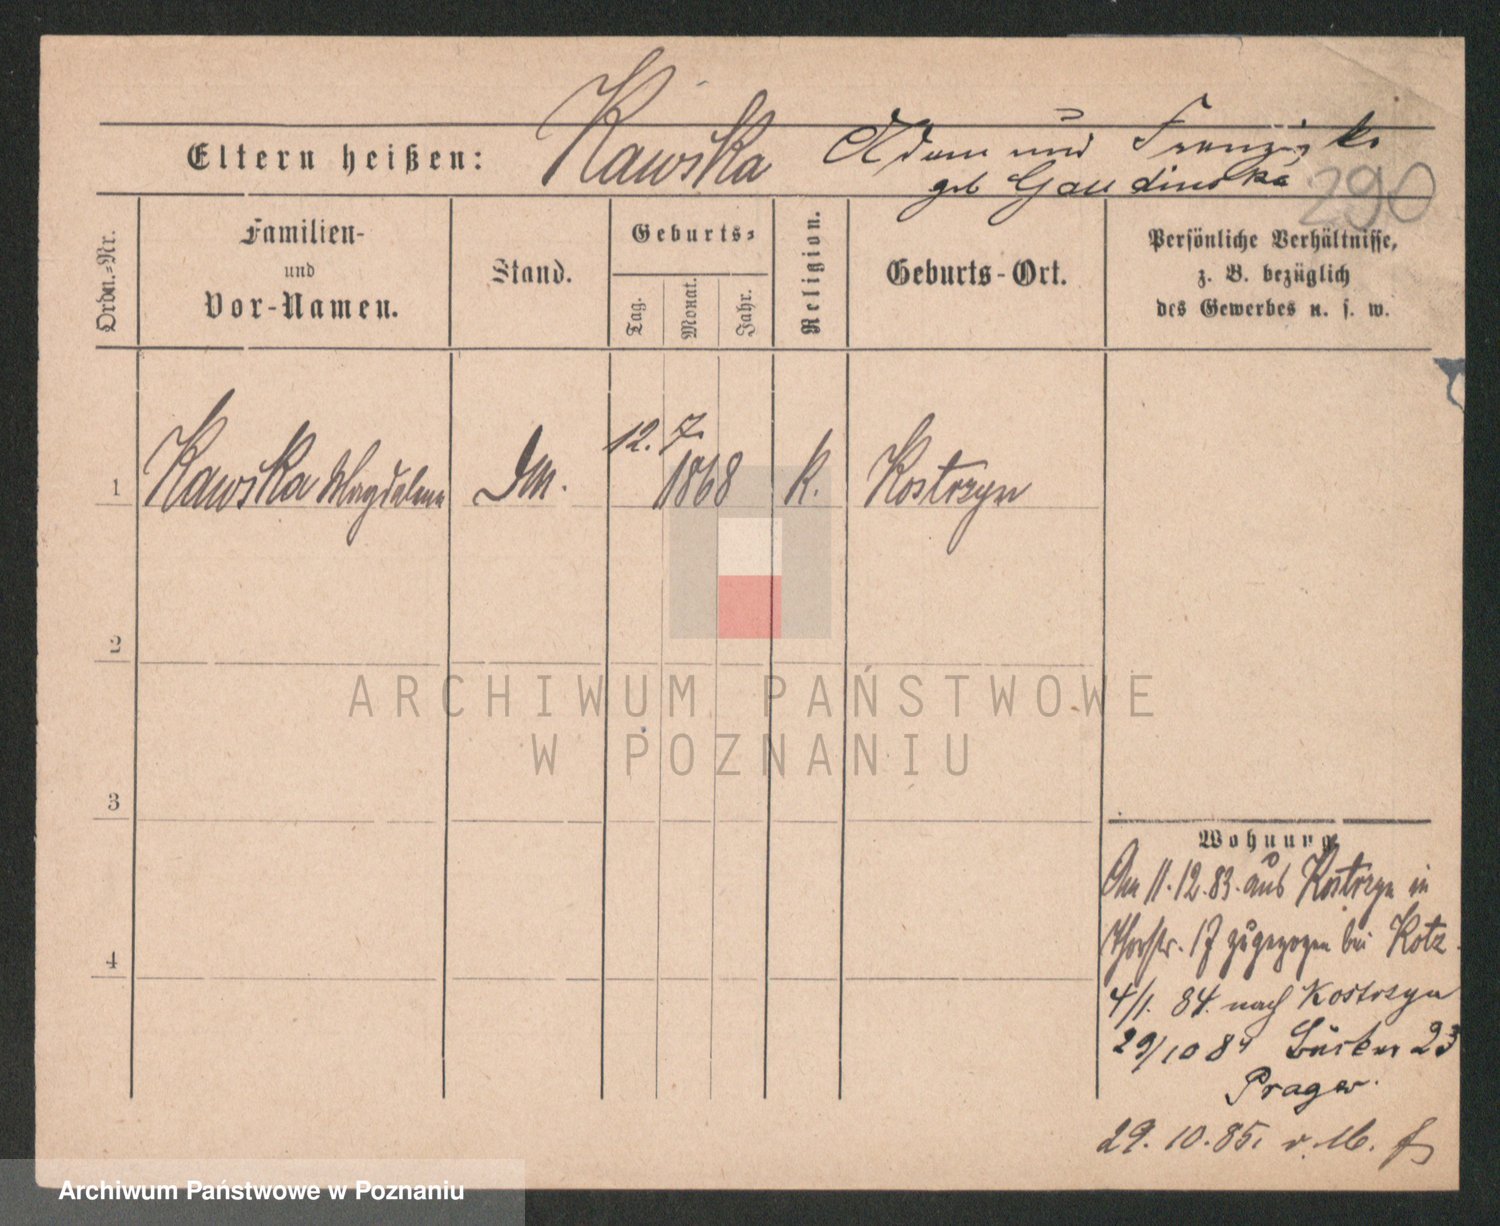 Kawska Adam und Franziska
Eltern heißen: geb
290
Ordn.=Nr.
Familien-
und
Vor-Namen.
Stand.
Geburts=
Tag.
Monat.
Jahr.
Religion.
Geburts-Ort.
Persönliche Verhältnisse,
z. B. bezüglich
des Gewerbes u. s. w.
1 Kawska Magdalena Dm. 12. 7. 1868 k. Kostrzyn
2
3
4
Wohnung.
Am 11.12.83. aus Kostrzyn in
17 zugezogen bei Kotz.
4/1. 84. nach Kostrzyn
29/10 84 23
Prager.
29. 10. 85.
ARCHIWUM PAŃSTWOWE
W POZNANIU
Archiwum Państwowe w Poznaniu